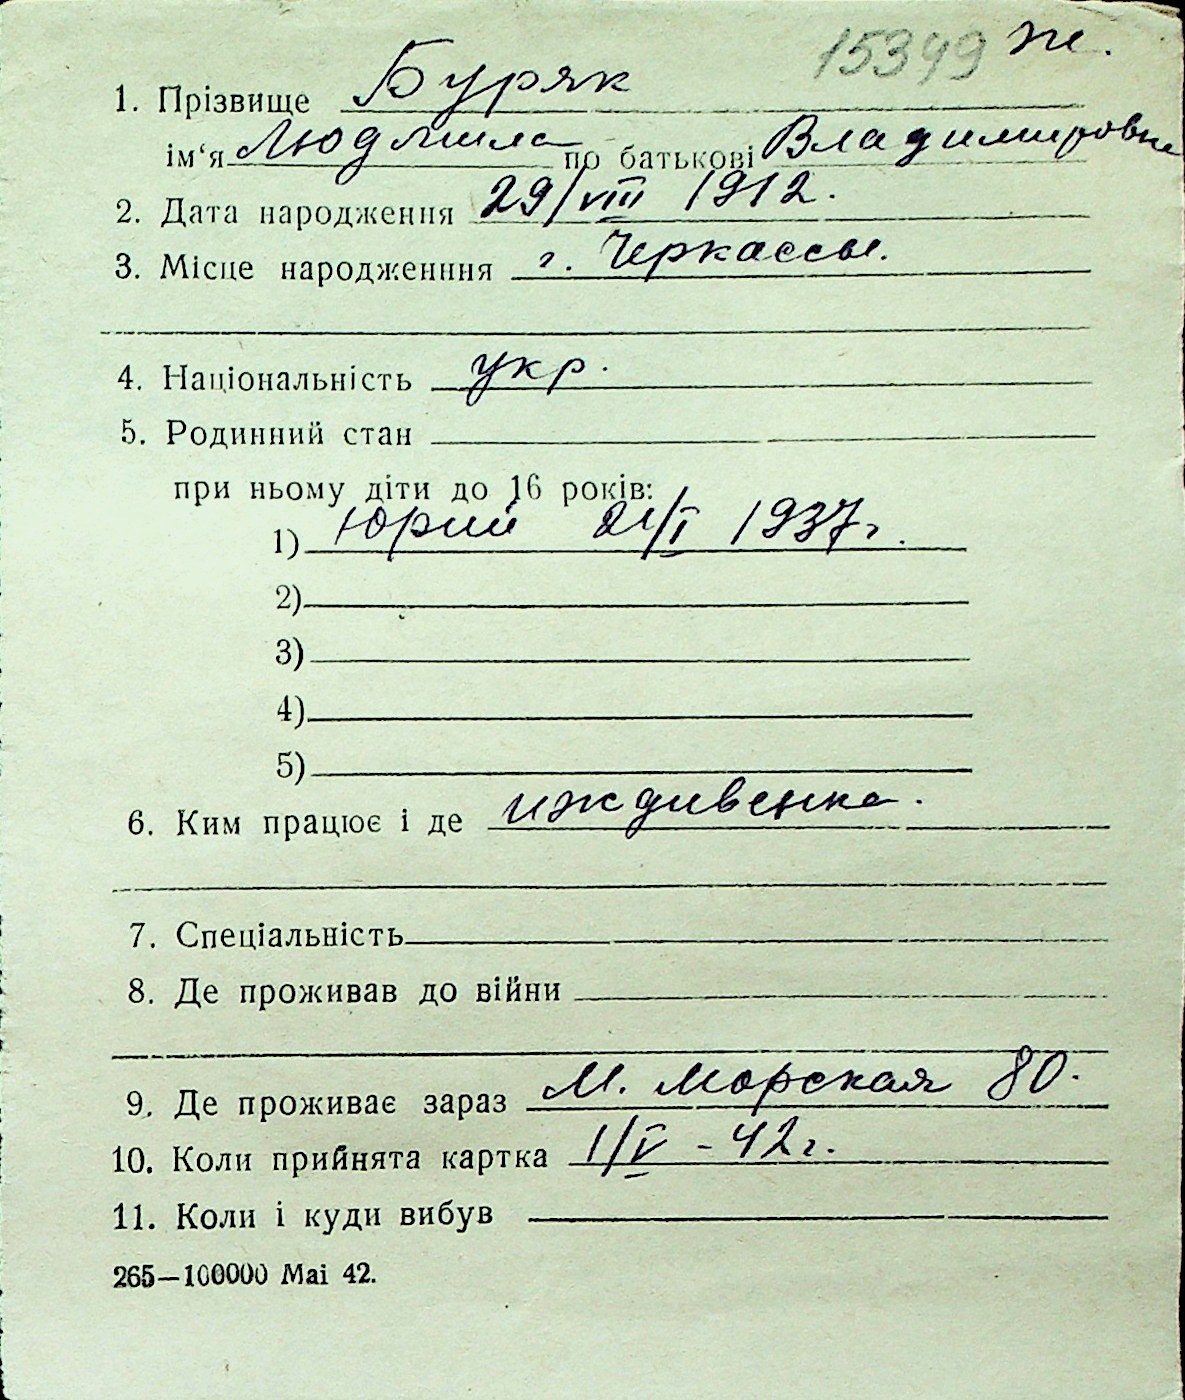 15349 ж.
1. Прізвище Буряк
ім‘я Людмила по батькові Владимировна
2. Дата народження 29/VIII 1912.
3. Місце народженння г. Черкассы.
4. Національність укр.
5. Родинний стан
при ньому діти до 16 років:
1) Юрий 21/I 1937 г.
2)
3)
4)
5)
6. Ким працює і де иждивенка.
7. Спеціальність
8. Де проживав до війни
9. Де проживає зараз М. Морская 80.
10. Коли прийнята картка 1/V - 42 г.
11. Коли і куди вибув
265—100000 Mai 42.